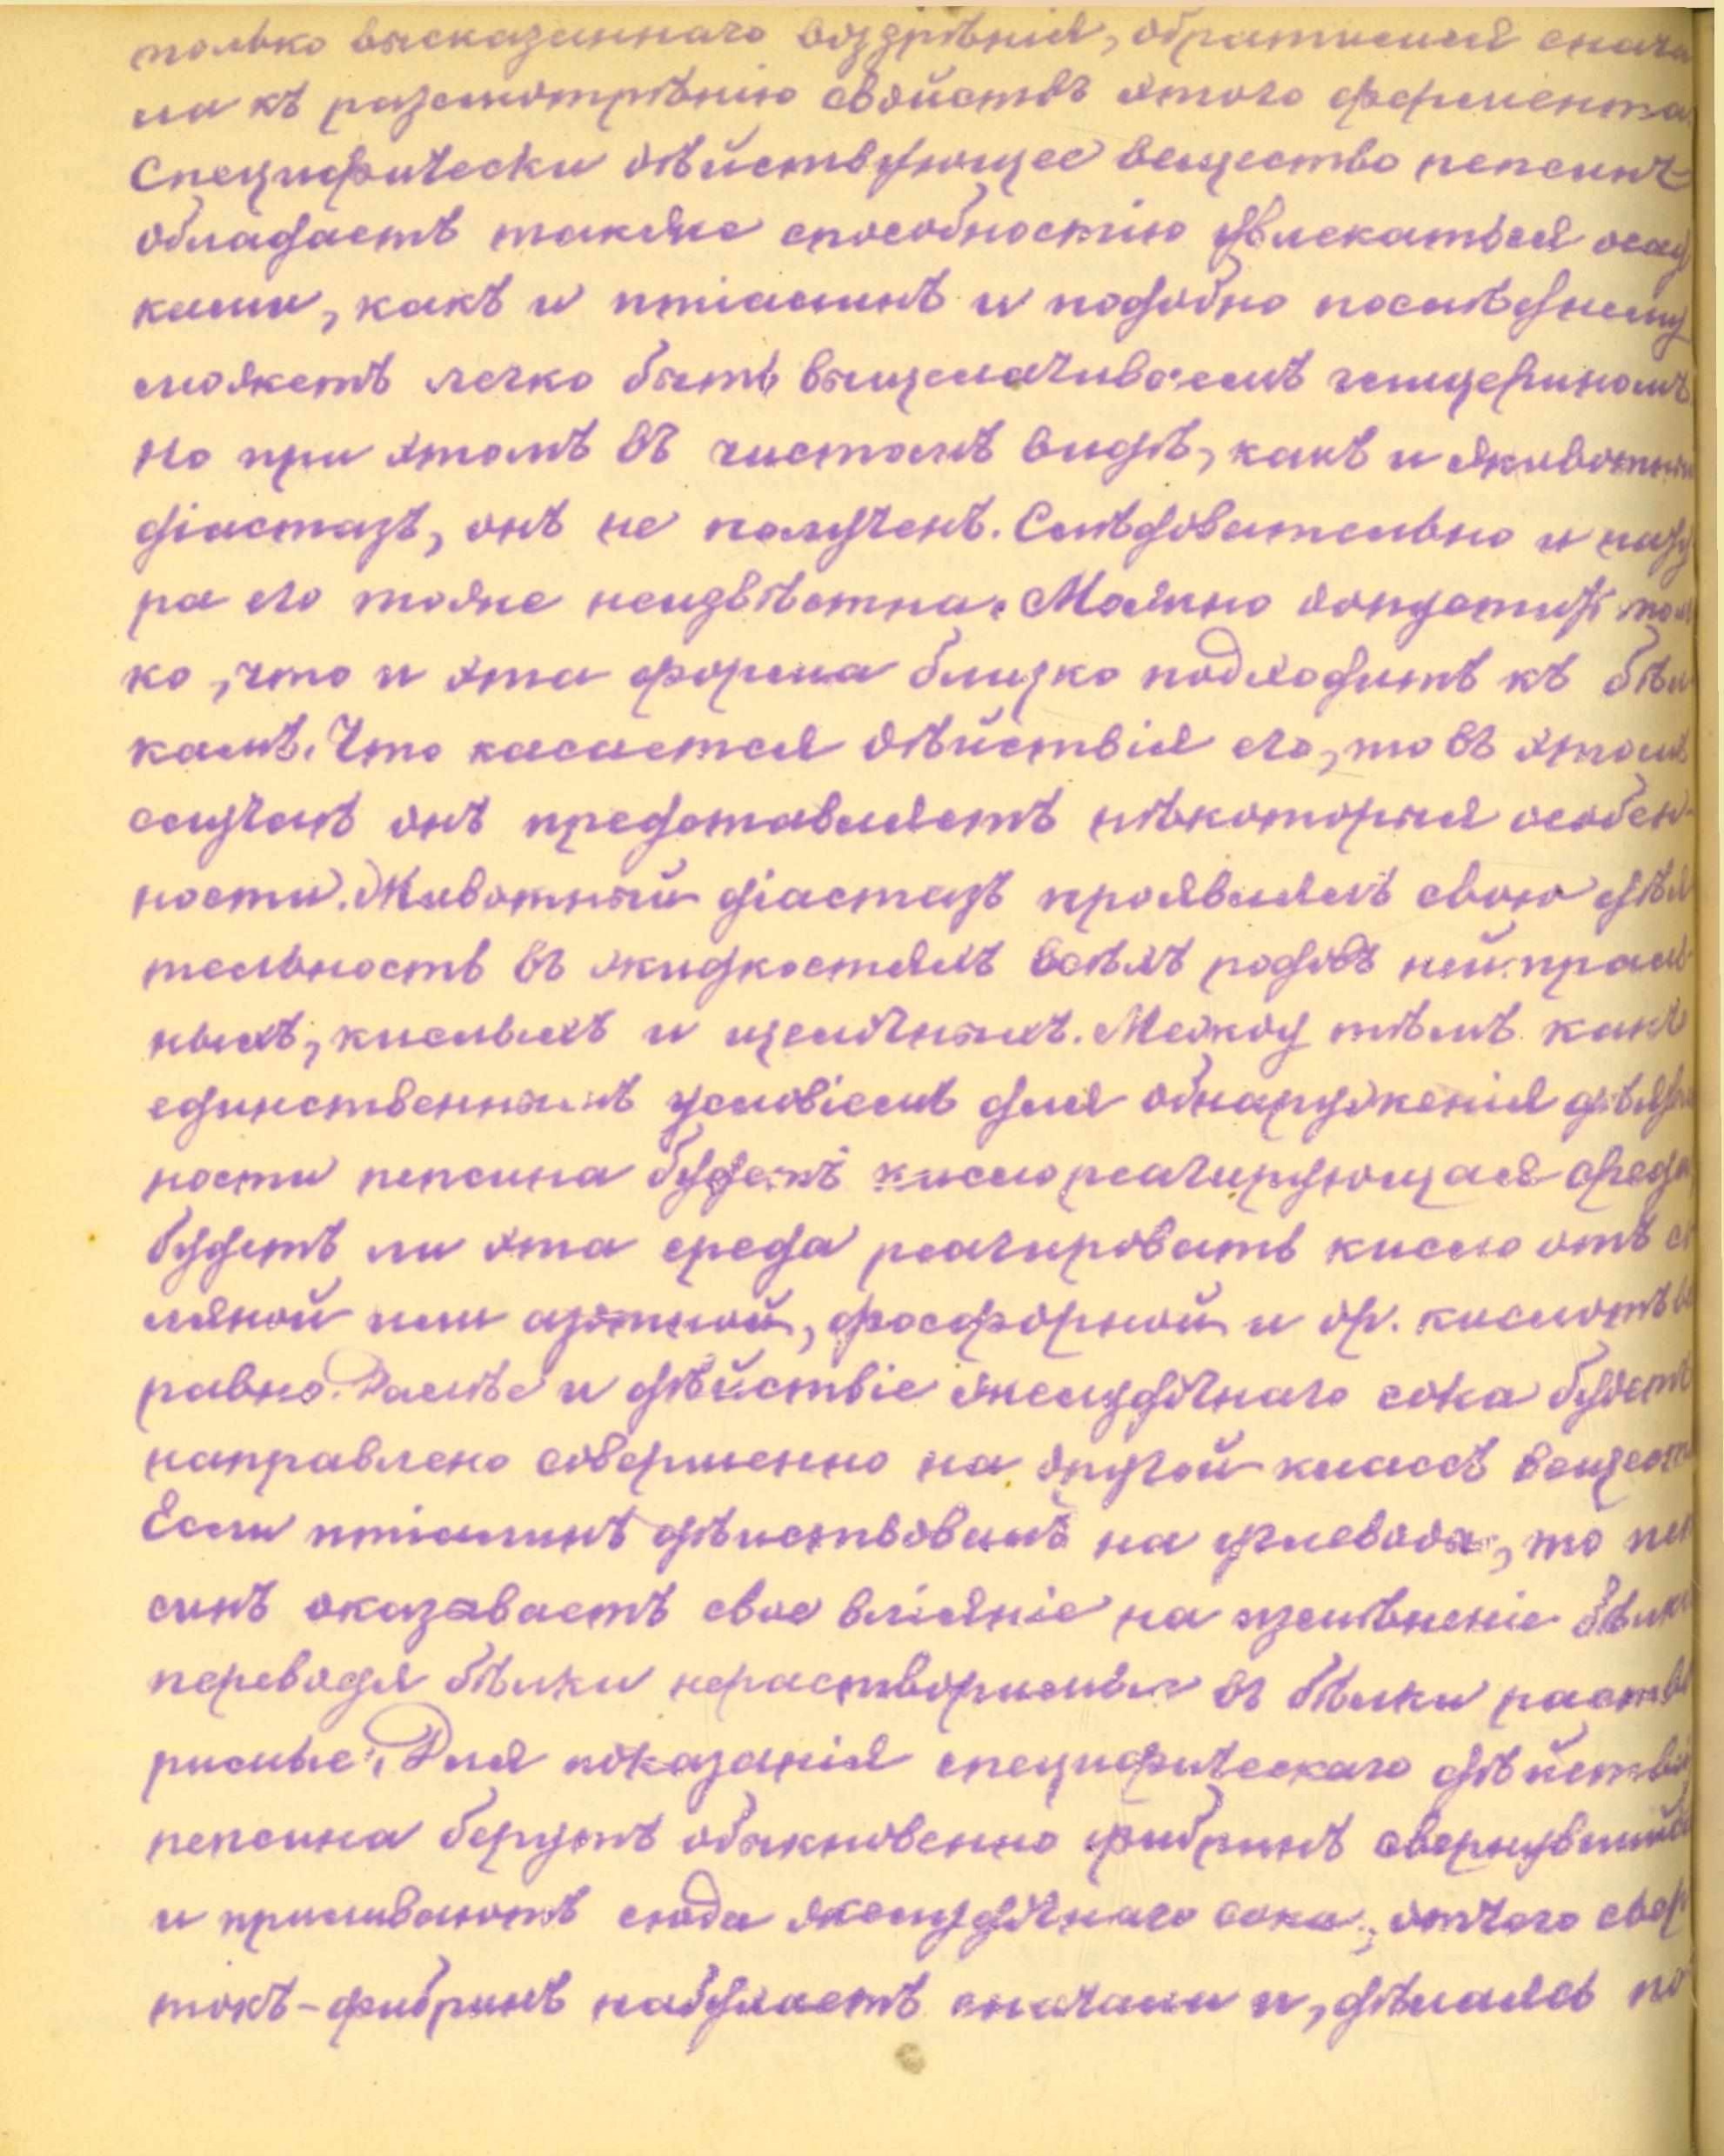 только высказаннаго воззрѣнія, обратимся снача
ла къ разсмотрѣнію свойствъ этого фермента.
Специфически дѣйствующее вещество пепсинъ
обладаетъ такжне способностію увлекаться осад
ками, какъ и птіалинъ и подобно послѣднему
можетъ легко быть выщелачиваемъ глицериномъ.
Но при этомъ въ чистомъ видѣ, какъ и животный
діастазъ, онъ не полученъ. Слѣдовательно и нату
ра его тоже неизвѣстна. Можно допустить толь
ко, что и эта форма близко подходитъ къ бѣл
камъ. Что касается дѣйствія его, то въ этомъ
случаѣ онъ представляетъ нѣкоторыя особен-
ности. Животный діастазъ проявлялъ свою дѣя
тельность въ жидкостяхъ всѣхъ родовъ нейтраль
ныхъ, кислыхъ и щелочныхъ. Между тѣмъ какъ
единственнымъ условіемъ для обнаруженія дѣятель
ности пепсина будетъ кисло реагирующая среда
будетъ ли эта среда реагировать кисло отъ со
ляной или азотной, фосфорной и др. кислотъ все
равно. Далѣе и дѣйствіе желудочнаго сока будетъ
направлено совершенно на другой классъ веществ
Если птіалинъ дѣйствовалъ на углеводы, то пеп
синъ оказываетъ свое вліяніе на измѣненіе бѣлк
переводя бѣлки нерастворимые въ бѣлки раство
римые. Для показанія специфическаго дѣйствія
пепсина берутъ обыкновенно фибринъ свернувшійся
и приливаютъ сюда желудочнаго сока, отчего свер
токъ-фибринъ набухаетъ сначала и, дѣлаясь по